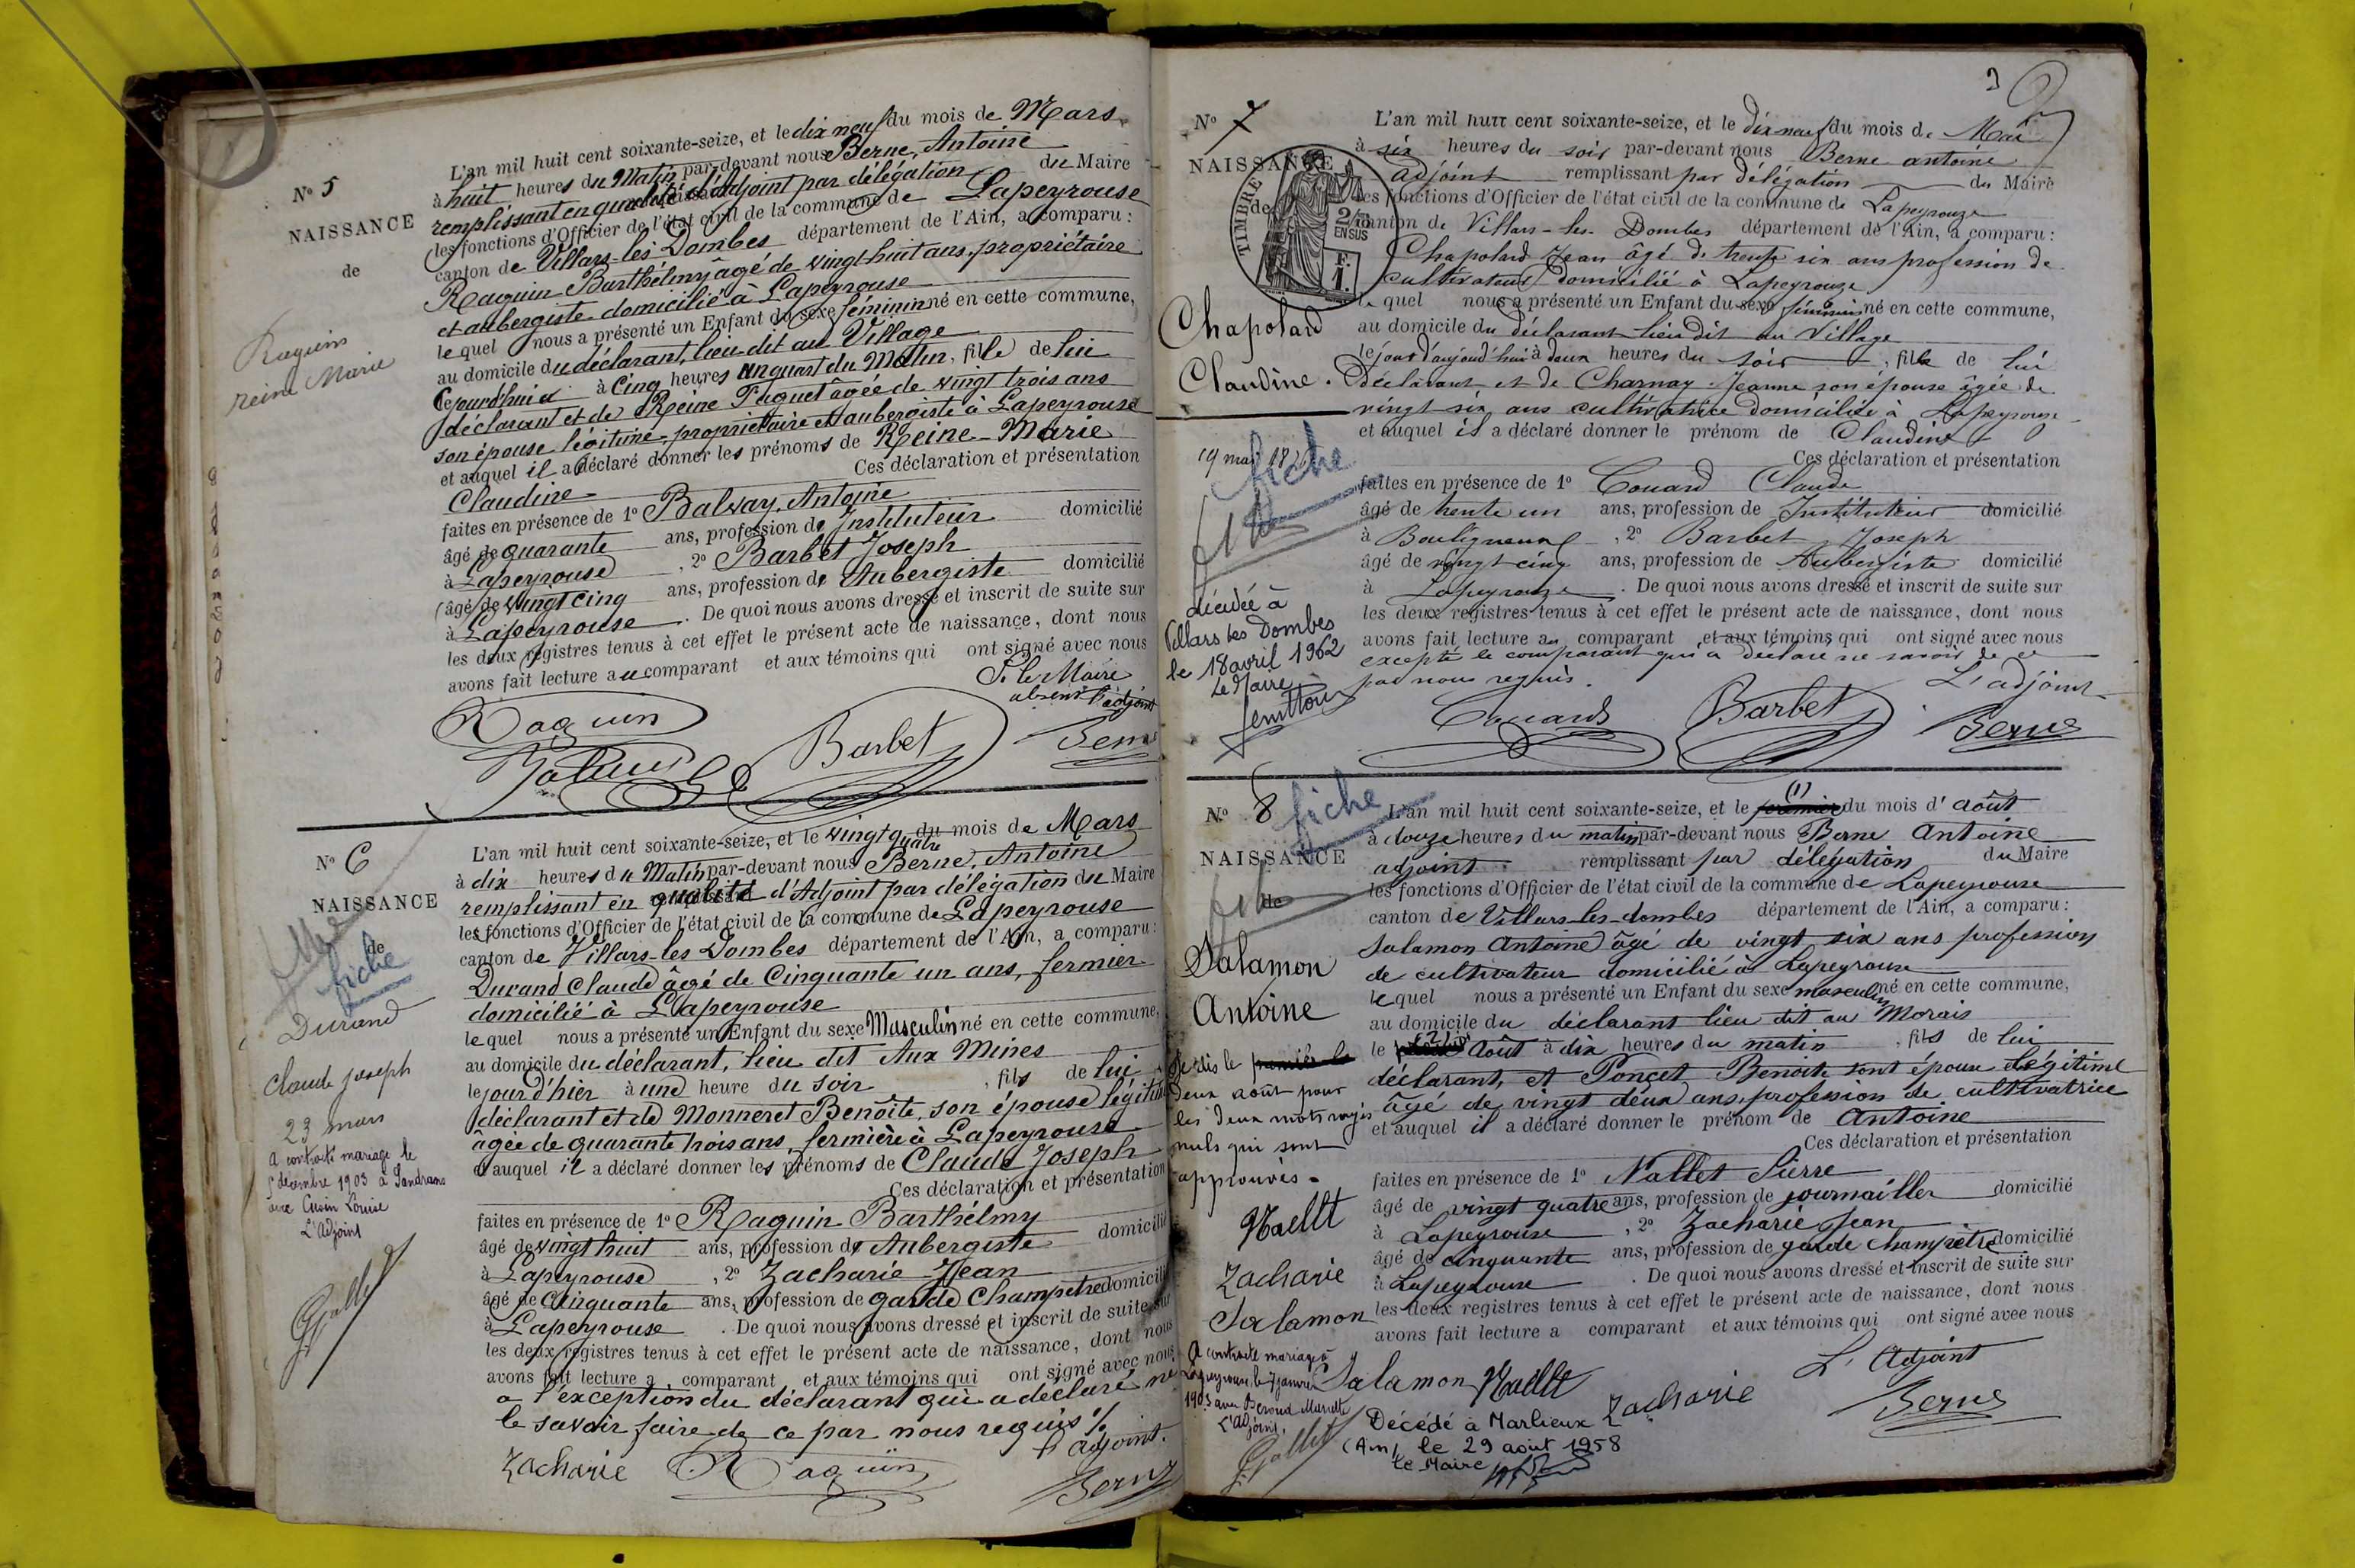 N° 5
NAISSANCE
de
Raquin
reine Marie
L'an mil huit cent soixante-seize, et le dix neuf du mois de Mars
à huit heures du Matin par-devant nous Berne, Antoine
remplissant en qualité d'Adjoint par délégation du Maire
les fonctions d'Officier de l'état civil de la commune de Lapeyrouse
canton de Villars-les-Dombes département de l'Ain, a comparu :
Raquin Barthélmy âgé de vingt-huit ans, propriétaire
et aubergiste domicilié à Lapeyrouse
lequel nous a présenté un Enfant du sexe féminin né en cette commune,
au domicile du déclarant, lieu dit au Village
cejourd'hui à Cinq heures un quart du Matin, fille de lui
déclarant et de Reine Fuguet âgée de vingt trois ans
son épouse légitime, propriétaire et aubergiste à Lapeyrouse
et auquel il a déclaré donner les prénoms de Reine-Marie
Claudine Ces déclaration et présentation
faites en présence de 1° Balvay, Antoine
âgé de quarante ans, profession de Instituteur domicilié
à Lapeyrouse , 2° Barbet Joseph
âgé de vingt cinq ans, profession de Aubergiste domicilié
à Lapeyrouse . De quoi nous avons dressé et inscrit de suite sur
les deux registres tenus à cet effet le présent acte de naissance, dont nous
avons fait lecture au comparant et aux témoins qui ont signé avec nous
P. le Maire
absent l'adjoint
Raquin
Barbet
Berne
N° 6
NAISSANCE
de
fiche
Durand
Claude Joseph
23 mars
A contracté mariage le
5 décembre 1903 à Sandrans
avec Cusin Louise
L'Adjoint
L'an mil huit cent soixante-seize, et le vingt quatre du mois de Mars
à dix heures du Matin par-devant nous Berne, Antoine
remplissant en qualité d'Adjoint par délégation du Maire
les fonctions d'Officier de l'état civil de la commune de Lapeyrouse
canton de Villars-les Dombes département de l'Ain, a comparu :
Durand Claude âgé de Cinquante un ans, fermier
domicilié à Lapeyrouse
lequel nous a présenté un Enfant du sexe Masculin né en cette commune,
au domicile du déclarant, lieu dit Aux Mines
le jour d'hier à une heure du soir , fils de lui
déclarant et de Monneret Benoîte, son épouse légitime
âgée de quarante trois ans, fermière à Lapeyrouse
et auquel il a déclaré donner les prénoms de Claude Joseph
Ces déclaration et présentation
faites en présence de 1° Raquin Barthélmy
âgé de vingt huit ans, profession de Aubergiste domicilié
à Lapeyrouse , 2° Zacharie Jean
âgé de Cinquante ans, profession de garde Champêtre domicilié
à Lapeyrouse . De quoi nous avons dressé et inscrit de suite sur
les deux registres tenus à cet effet le présent acte de naissance, dont nous
avons fait lecture a comparant et aux témoins qui ont signé avec nous
a l'exception du déclarant qui a déclaré ne
le savoir faire de ce par nous requis %
l'adjoint.
Zacharie Raquin Berne
N° 7
NAISSANCE
de
TIMBRE
2/10 EN SUS
F. 1.
Chapolard
Claudine.
19 mai
fiche
décédée à
Villars les Dombes
le 18 avril 1962
Le Maire
L'an mil huit cent soixante-seize, et le dix neuf du mois de Mai
à six heures du soir par-devant nous Berne antoine
adjoint remplissant par délégation du Maire
les fonctions d'Officier de l'état civil de la commune de Lapeyrouze
canton de Villars-les-Dombes département de l'Ain, a comparu :
Chapolard Jean âgé de trente six ans profession de
cultivateur domicilié à Lapeyrouze
le quel nous a présenté un Enfant du sexe féminin né en cette commune,
au domicile du déclarant lieu dit au Village
le jour d'aujourd'hui à deux heures du soir , fille de lui
déclarant et de Charnay Jeanne son épouse âgée de
vingt six ans cultivatrice domiciliée à Lapeyrouze
et auquel il a déclaré donner le prénom de Claudine
Ces déclaration et présentation
faites en présence de 1° Couard Claude
âgé de trente un ans, profession de Instituteur domicilié
à Bouligneux , 2° Barbet Joseph
âgé de vingt cinq ans, profession de Aubergiste domicilié
à Lapeyrouze . De quoi nous avons dressé et inscrit de suite sur
les deux registres tenus à cet effet le présent acte de naissance, dont nous
avons fait lecture au comparant et aux témoins qui ont signé avec nous
excepté le comparant qui a déclaré ne savoir de ce
par nous requis. L'adjoint
Couard Barbet Berne
N° 8
fiche
NAISSANCE
de
Salamon
Antoine
Je dis le premier le
deux août pour
les deux mots rayés
nuls qui sont
approuvés.
Nallet
Zacharie
Salamon
A contracté mariage à
Lapeyrouse, le 7 janvier
1903 avec Beroud Mariette
L'adjoint.
L'an mil huit cent soixante-seize, et le premier (1) du mois d'août
à douze heures du matin par-devant nous Berne Antoine
adjoint. remplissant par délégation du Maire
les fonctions d'Officier de l'état civil de la commune de Lapeyrouse
canton de Villars-les-dombes département de l'Ain, a comparu :
Salamon Antoine âgé de vingt six ans profession
de cultivateur domicilié à Lapeyrouse
lequel nous a présenté un Enfant du sexe masculin né en cette commune,
au domicile du déclarant lieu dit au Morais
le (2) août à dix heures du matin , fils de lui
déclarant, et Poncet Benoite sont épouse légitime
âgé de vingt deux ans, profession de cultivatrice
et auquel il a déclaré donner le prénom de Antoine
Ces déclaration et présentation
faites en présence de 1° Nallet Pierre
âgé de vingt quatre ans, profession de journailler domicilié
à Lapeyrouse , 2° Zacharie Jean
âgé de cinquante ans, profession de garde champêtre domicilié
à Lapeyrouse . De quoi nous avons dressé et inscrit de suite sur
les deux registres tenus à cet effet le présent acte de naissance, dont nous
avons fait lecture a comparant et aux témoins qui ont signé avec nous
L'Adjoint
Salamon Nallet Zacharie Berne
Décédé à Marlieux
(Ain), le 29 août 1958
Le Maire